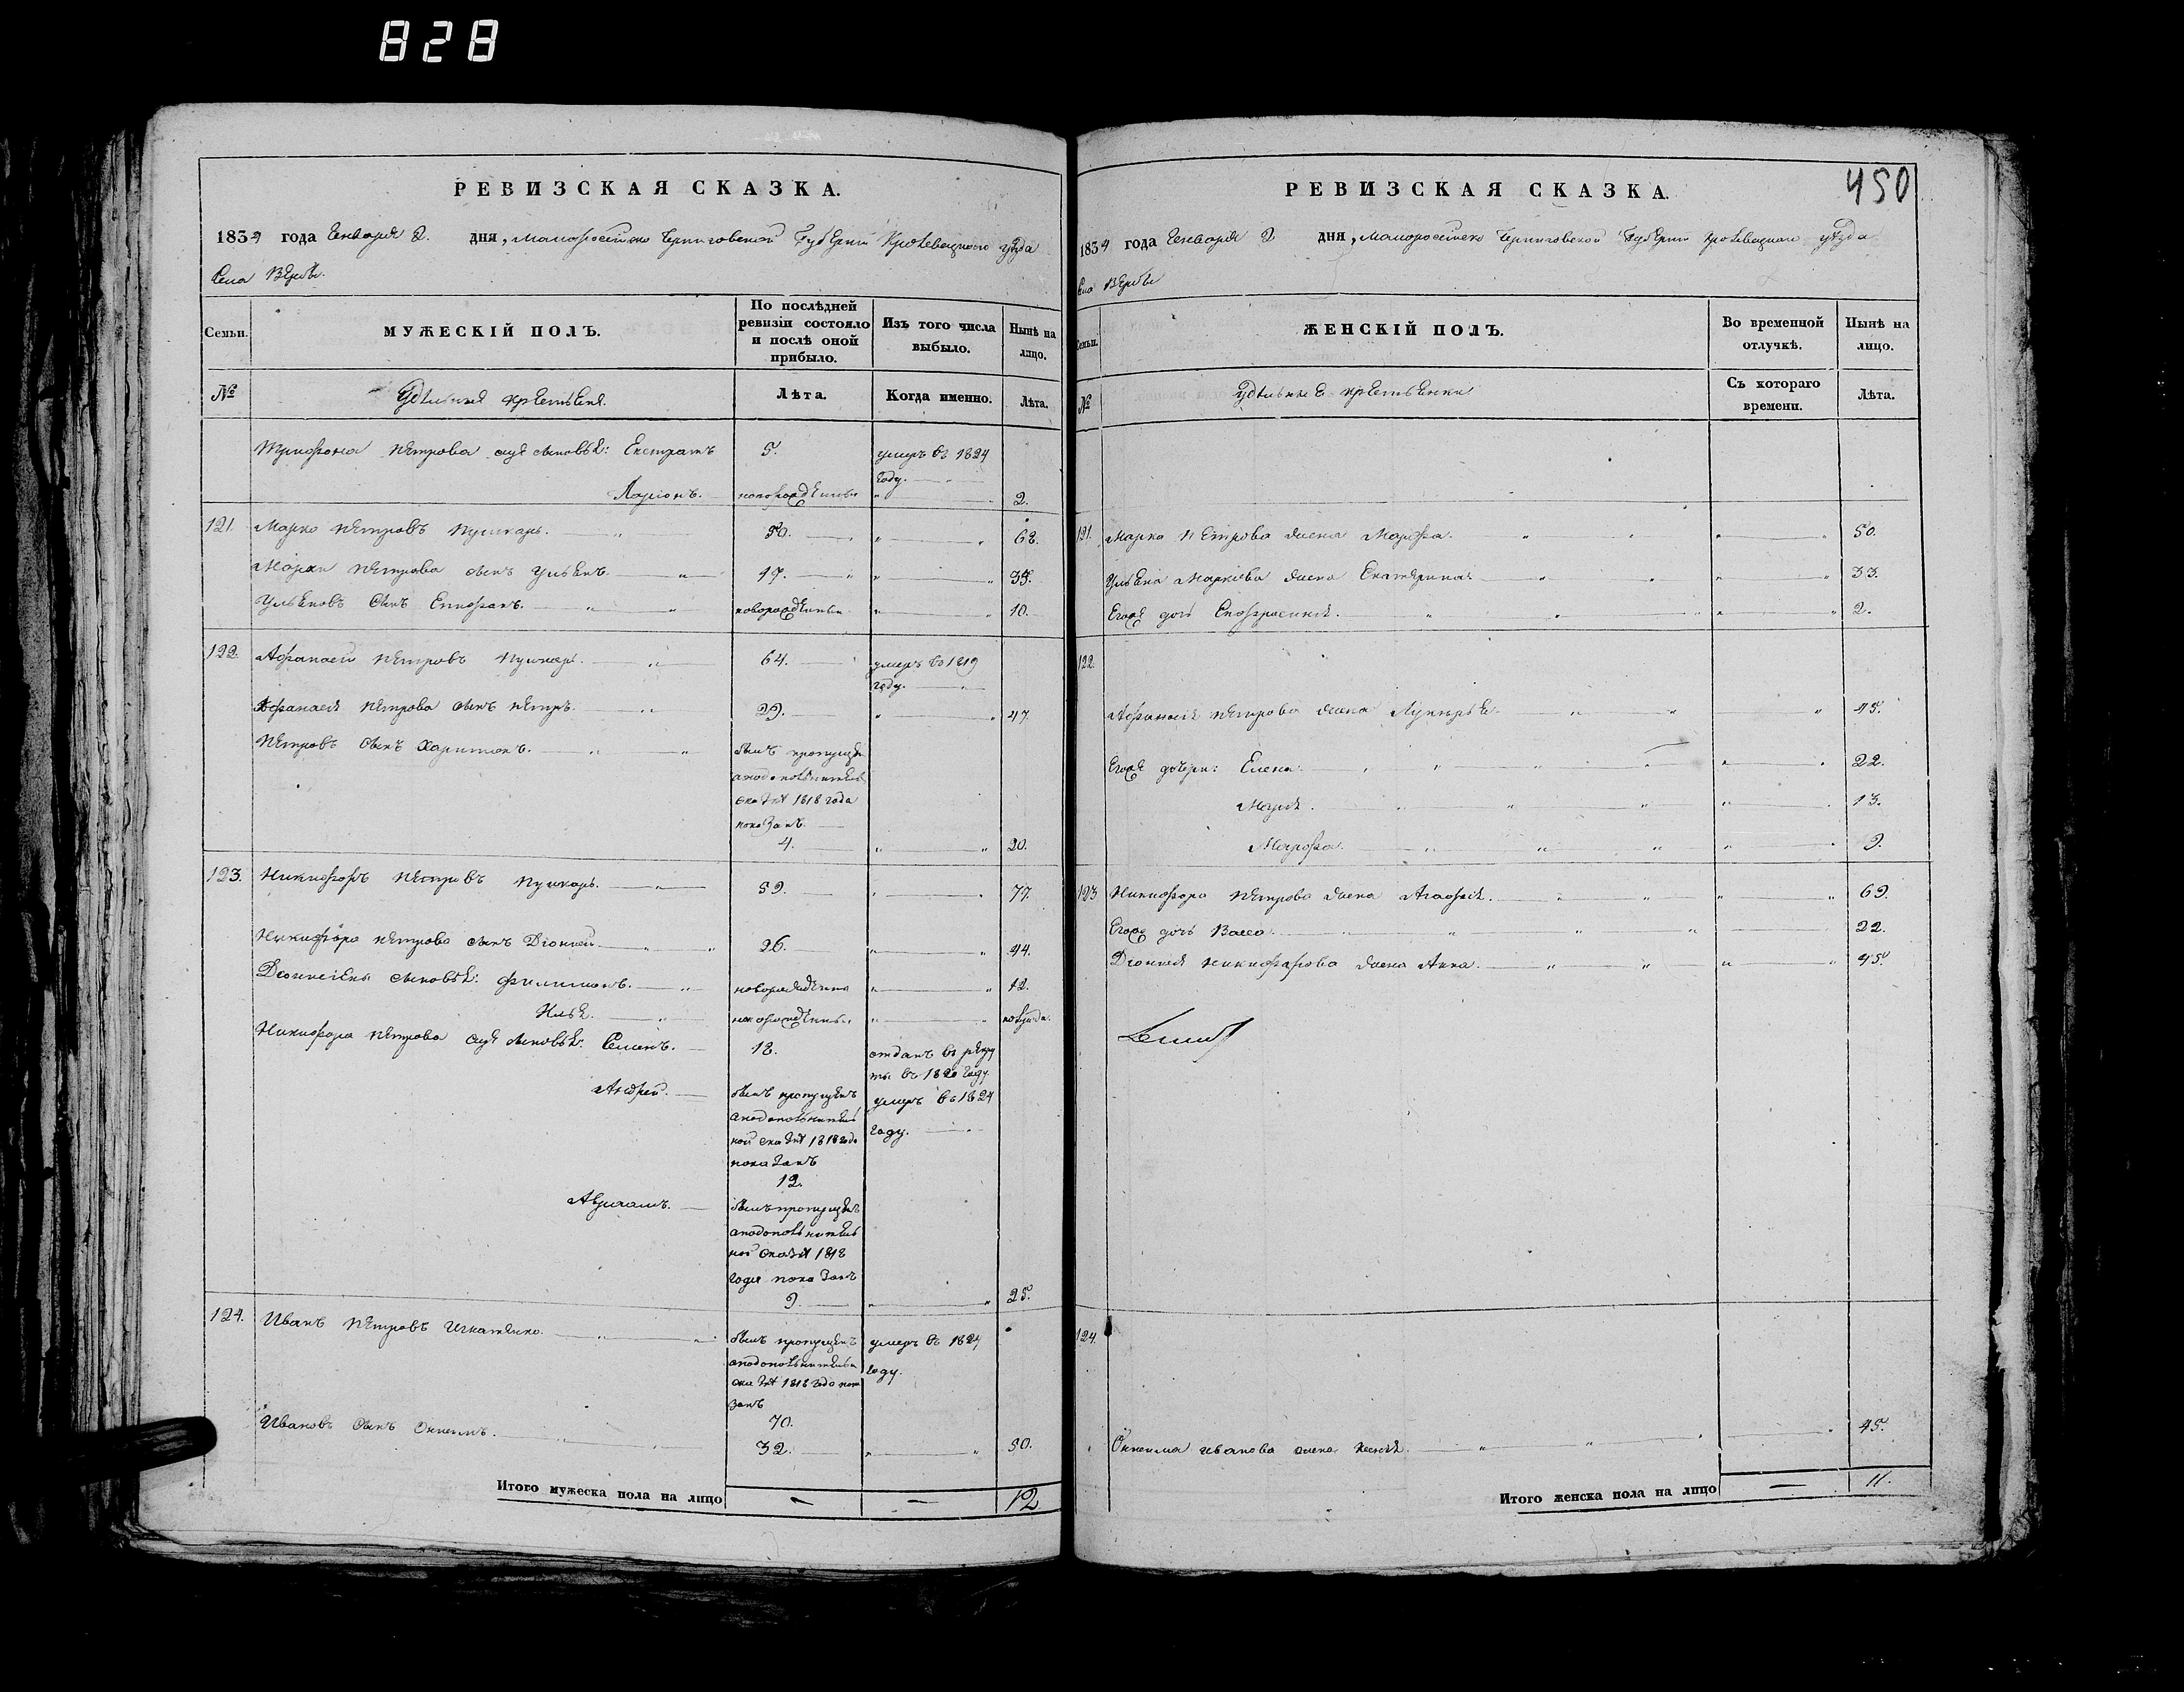 828
450
РЕВИЗСКАЯ СКАЗКА.
1834 года Генваря 2. дня, Малоросійско Черниговской Губерніи Кролевецкого уѣзда
Села Вербы.
Семьи. МУЖЕСКІЙ ПОЛЪ. По послѣдней ревизіи состояло и послѣ оной прибыло. Изъ того числа выбыло. Нынѣ на лицо.
№ Удѣльныя крестьяня. Лѣта. Когда именно. Лѣта.
Трифона Петрова сыновья: Евстратъ 5. умеръ въ 1824
году.
Ларіонъ. новорожденный 2.
121. Марко Петровъ Пушкарь. 50. 68.
Марки Петрова сынъ Ульянъ. 17. 35.
Ульяновъ сынъ Епифанъ. новорожденный 10.
122. Афанасій Петровъ Пушкарь. 64. умеръ въ 1819
году.
Афанасія Петрова сынъ Петръ. 29. 47.
Петровъ сынъ Харитонъ. былъ пропущен
а по дополнительной
сказкѣ 1818 года
показанъ
4. 20.
123. Никифоръ Петровъ Пушкарь. 59. 77.
Никифора Петрова сынъ Діонисій 26. 44.
Діонисіевы сыновья: Филимонъ. новорожденный 12.
Илья. новорожденный полгода.
Никифора Петрова сыновья: Семенъ. 18. отданъ въ рекру
ты въ 1820 году
Андрей. былъ пропущенъ умеръ въ 1824
а по дополнитель году.
ной сказкѣ 1818 года
показанъ
12.
Авраамъ. былъ пропущенъ
а по дополнитель
ной сказкѣ 1818
года показанъ
9. 25.
124. Иванъ Петровъ Игнатенко. былъ пропущенъ умеръ въ 1824
а по дополнительной году.
сказкѣ 1818 года пока
занъ
70.
Ивановъ сынъ Онисимъ. 32. 50.
Итого мужеска пола на лицо 12
РЕВИЗСКАЯ СКАЗКА.
1834 года Генваря 2 дня, Малоросійско Черниговской Губерніи Кролевецкого уѣзда
Села Вербы
Семьи. ЖЕНСКІЙ ПОЛЪ. Во временной отлучкѣ. Нынѣ на лицо.
№ Удѣльные крестьянки Съ котораго времени. Лѣта.
121. Марка Петрова жена Марфа. 50.
Ульяна Маркіева жена Екатерина 33.
Егоже дочь Ефросинія. 2.
122.
Афанасія Петрова жена 45.
Егоже дочери: Елена 22.
Марія. 13.
Марфа. 9.
123 Никифора Петрова жена Агафія. 69.
Егоже дочь Васса. 22.
Діонисія Никифорова жена Анна. 45.
124.
Онисима Иванова жена Ксенія. 45.
Итого женска пола на лицо 11.